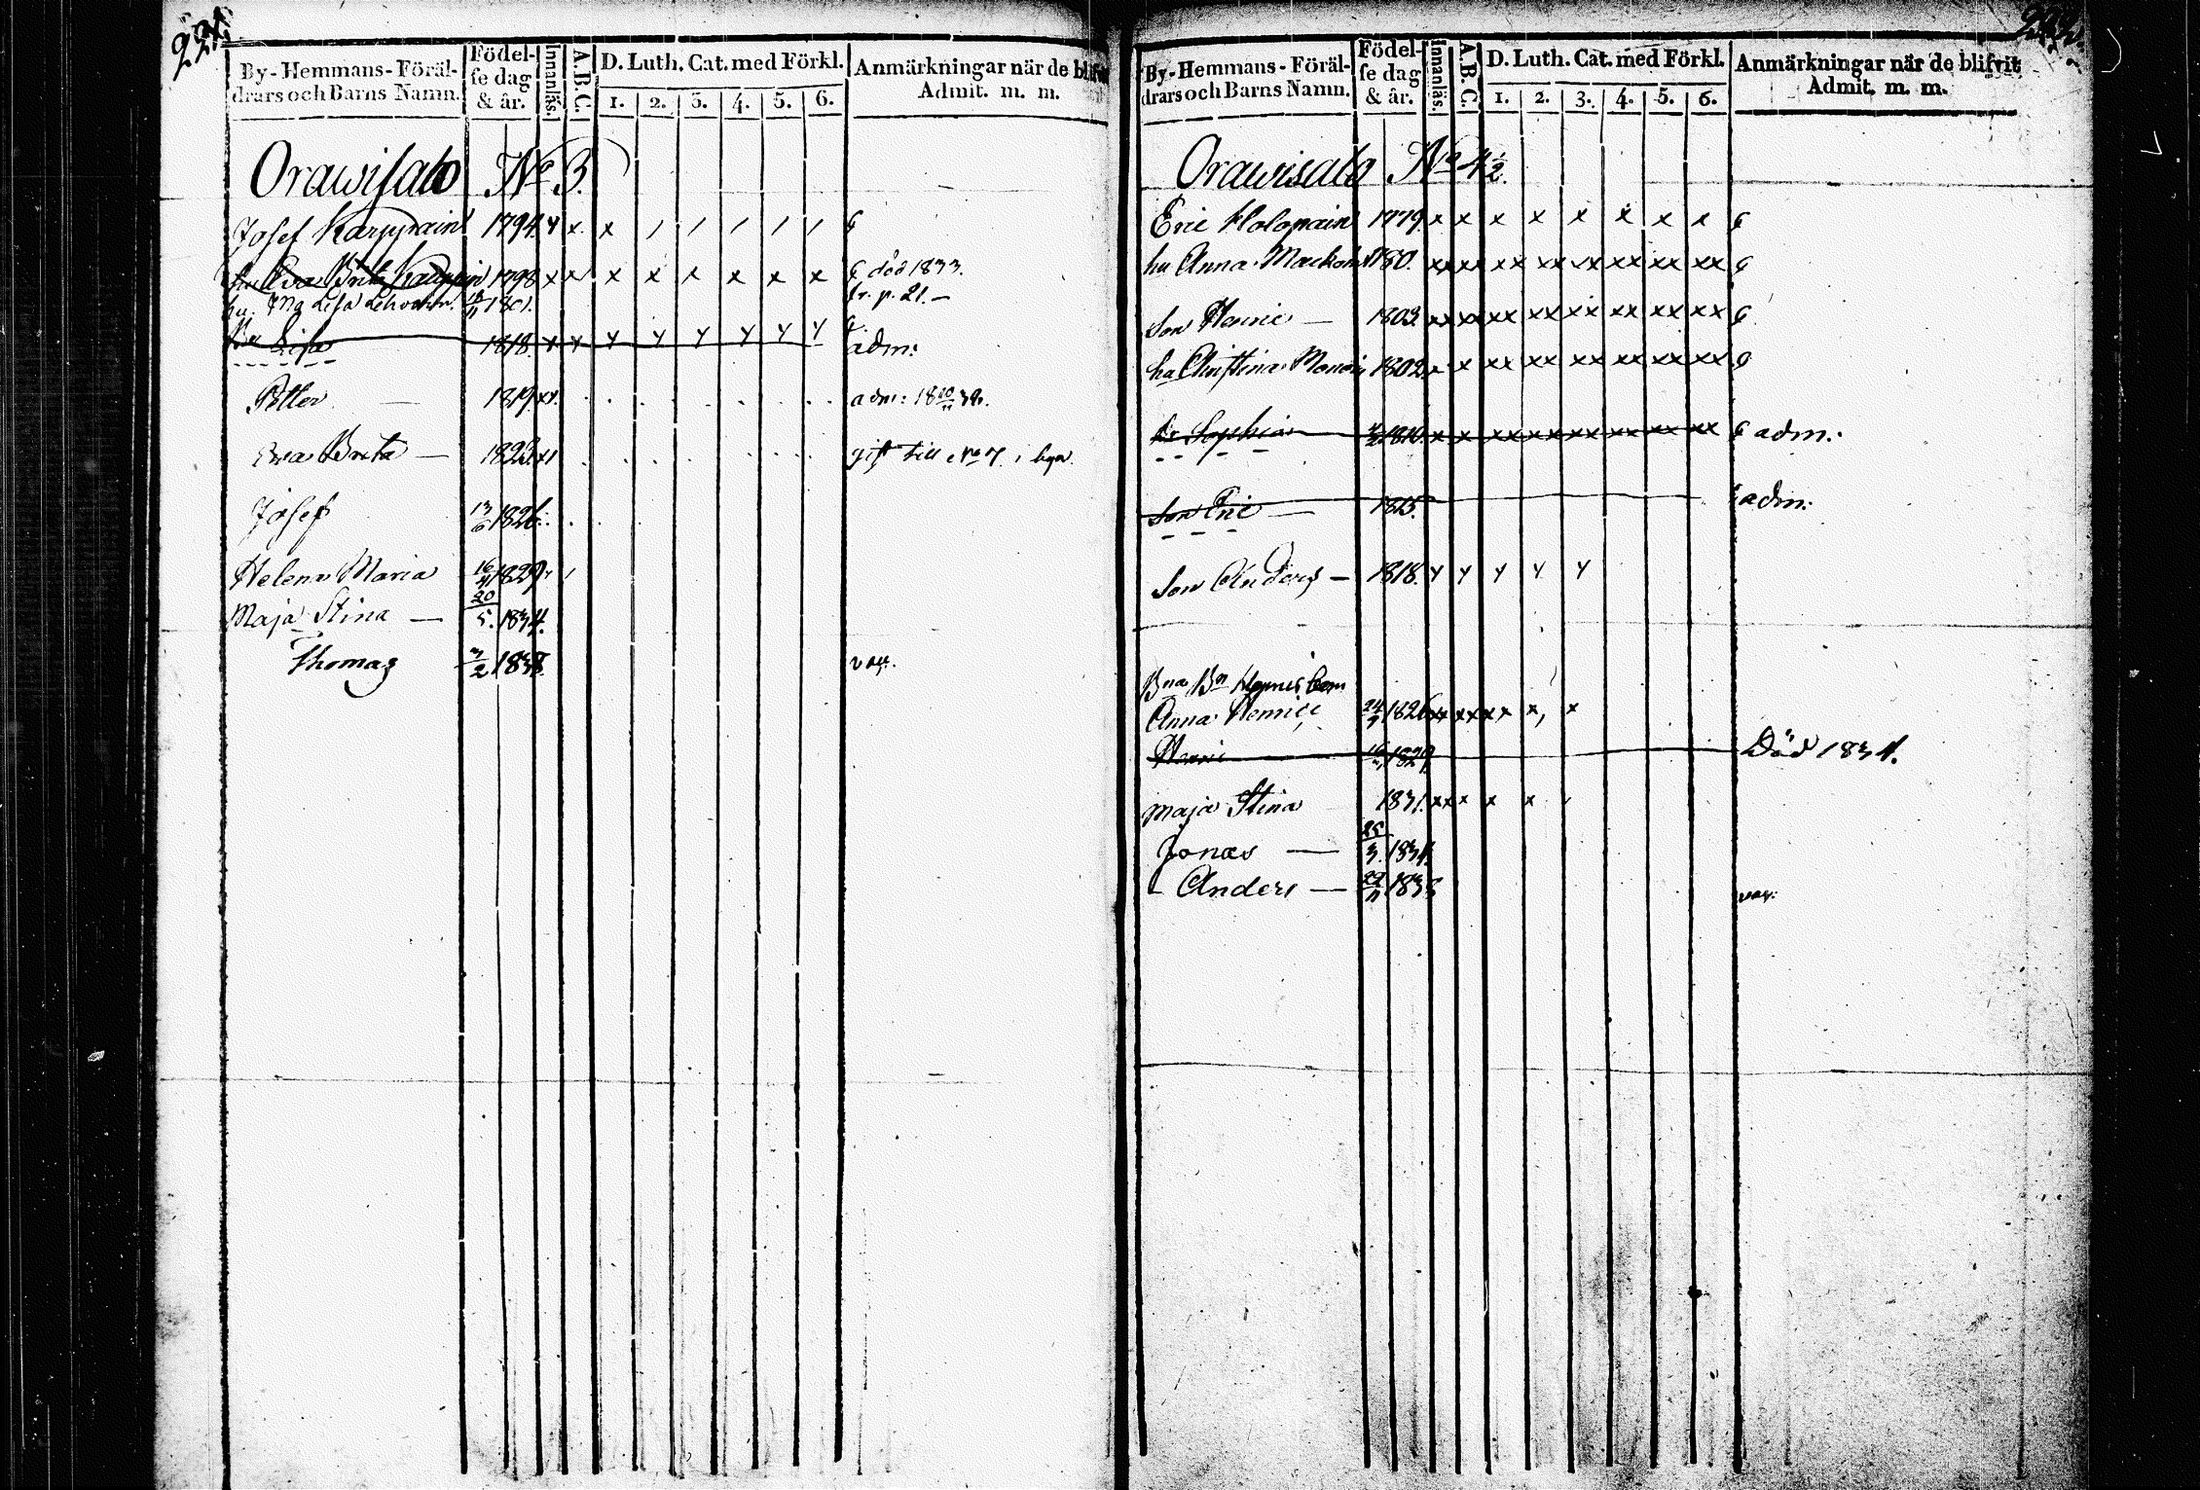 221.
By-Hemmans-Föräl-
drars och Barns Namn.
Födel-
se dag
& år.
Innanläs.
A.B.C.
D. Luth. Cat. med Förkl.
1. 2. 3. 4. 5. 6.
Anmärkningar när de blifvit
Admit. m. m.
Orawisalo No 3.
Josef Karppain 1794. x x x / / / / /
hu Eva Brita 1798 x x x x x x x x död 1833.
hu. Lisa 1801. fr. p. 21. —
Lisa 1818. adm:
Petter — 1819. adm:
Eva Brita — 1823. gift till No 7. i byn.
Josef 13/6 1826.
Helena Maria 16/11 1829.
Maja Stina — 20/5. 1834.
Thomas 7/2 1838. vac.
222.
By-Hemmans-Föräl-
drars och Barns Namn.
Födel-
se dag
& år.
Innanläs.
A.B.C.
D. Luth. Cat. med Förkl.
1. 2. 3. 4. 5. 6.
Anmärkningar när de blifvit
Admit. m. m.
Orawisalo No 4 1/2.
Eric Holopain 1779. x x x x x x x x
hu Anna 1780. xx xx xx xx xx xx xx xx
Son Henric — 1803. xx xx xx xx xx xx xx xx
hu Christina 1802. x x xx xx xx xx xx xx
Sophia 1810. x x xx xx xx xx xx xx adm.
Son Eric — 1815. adm.
Son Anders — 1818.
Bn Henrics barn
Anna Henrica 24/7 1826 xx xx xx x, x
Henric 1829. Död 1834.
Maja Stina 1831. xx x x x
Jonas — 25/3. 1834.
Anders — 1838 vac.